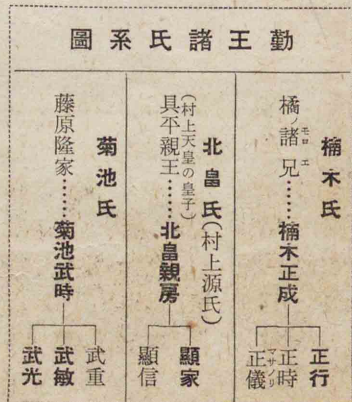 勤王諸氏系圖
楠木氏
橘ノ諸兄……楠木正成
モロエ
正行
正時
正儀
マサノリ
北畠氏(村上源氏)
(村上天皇の皇子)
具平親王……北畠親房
顯家
顯信
菊池氏
藤原隆家……菊池武時
武重
武敏
武光